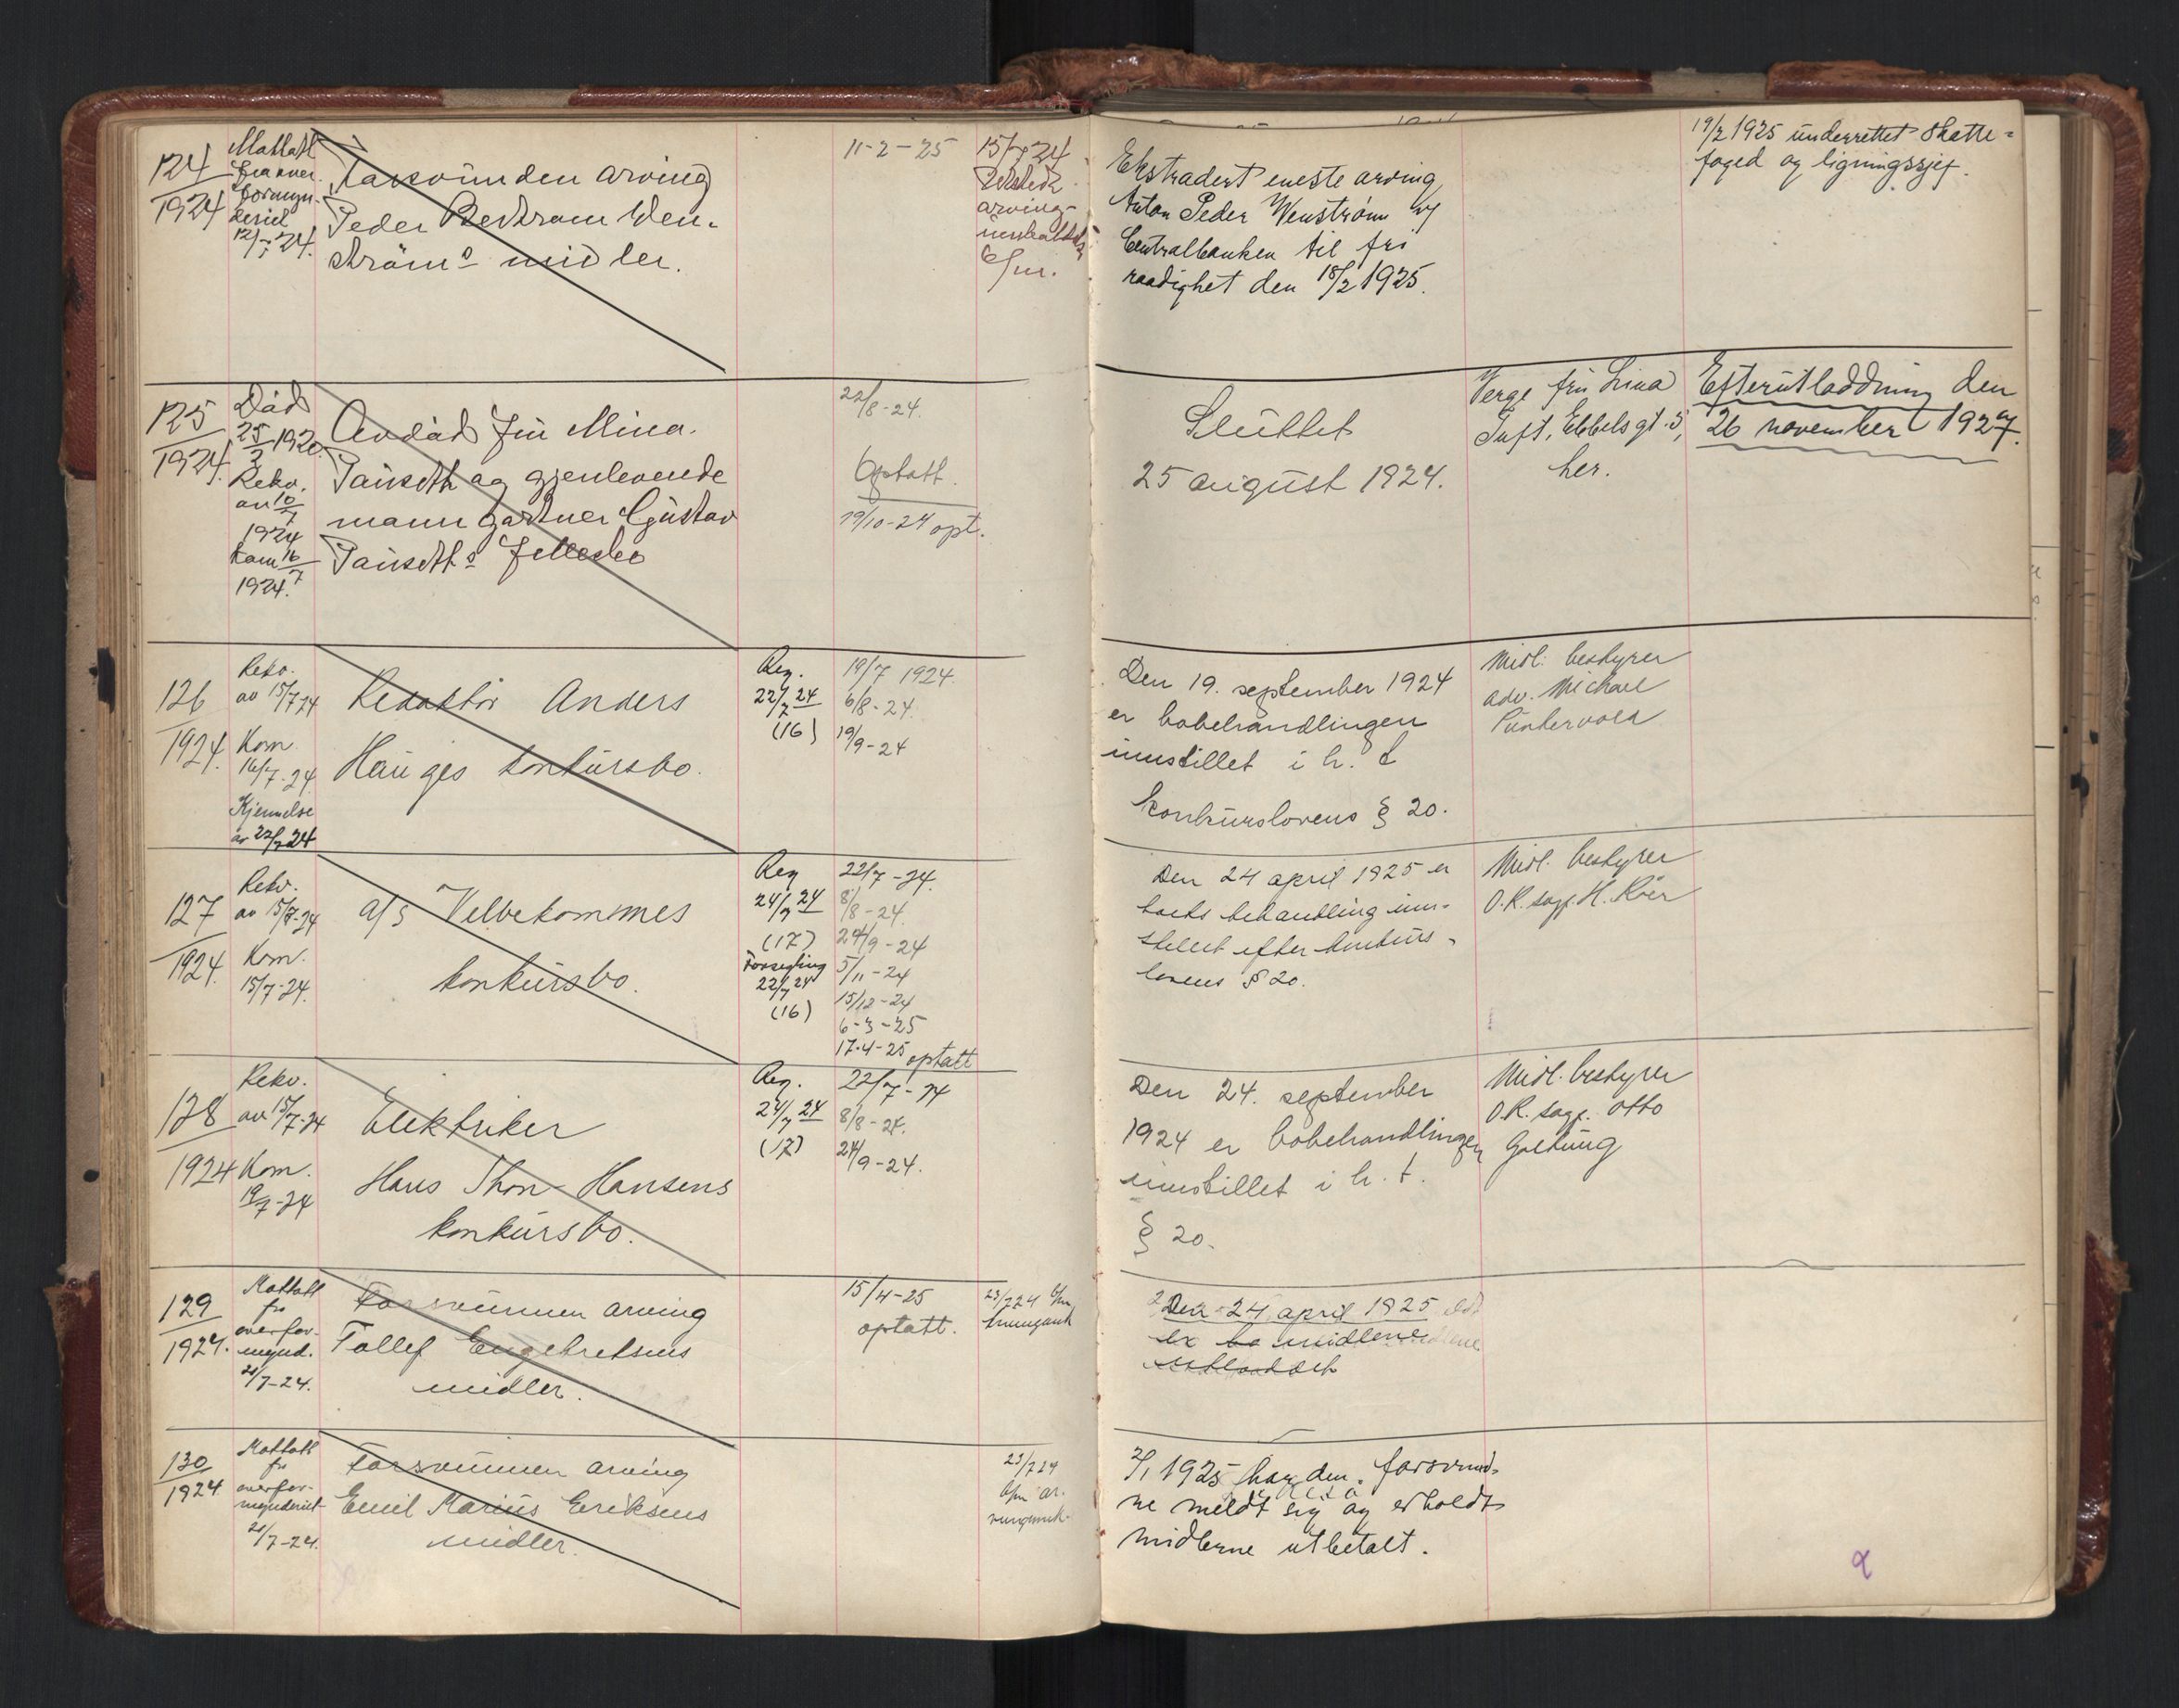 124
1924
Mottatt
fra over-
formyn-
deriet
12/7 24.
Forsvunden arving
Peder Bertram Wen-
strøms midler.
11-2-25
15/7 24
arving-
6/m.
Ekstradert eneste arving
Anton Peder Wenstrøm v/
Centralbanken til fri
raadighet den 18/2 1925.
19/2 1925 underrettet skatte-
foged og ligningssjef.
125
1924.
Død
25/3 1920.
Rekv.
av 10/7
1924
Kom 16/7
1924.
Avdød fru Mina
Pauseth og gjenlevende
mann gartner Gustav
Pauseths fellesbo
22/8-24.
Optatt.
19/10-24 opt.
Sluttet
25 august 1924.
Verge fru Lina
Tuft, Ebbelsgt. 5,
her.
Efterutloddning den
26 november 1927.
126
1924.
Rekv.
av 15/7 24
Kom.
16/7-24.
Kjennelse
av 22/7 24
Redaktør Anders
Hauges konkursbo.
Reg.
22/7 24
(16)
19/7 1924.
6/8-24.
19/9-24
Den 19. september 1924
er bobehandlingen
innstillet i h. t
konkurslovens § 20.
Midl. bestyrer
adv. Michael
Puntervold
127
1924.
Rekv.
av 15/7-24
Kom.
15/7-24.
a/s Velbekommes
konkursbo.
Reg
24/7 24
(17)
Forsegling
22/7 24
(16)
22/7-24.
8/8-24.
24/9-24
5/11-24
15/12-24
6-3-25
17-4-25 optatt
Den 24 april 1925 er
boets behandling inn-
stillet efter konkurs-
lovens § 20.
Midl. bestyrer
O.R. sagf. H. Röer
128
1924
Rekv.
av 15/7-24
Kom.
19/7-24
Elektriker
Hans Thon Hansens
konkursbo.
Reg.
24/7 24
(17)
22/7-24
8/8-24.
24/9-24.
Den 24. september
1924 er bobehandlingen
innstillet i h. t.
§ 20.
Midl. bestyrer
O.R. sagf. Otto
Galtung
129
1924.
Mottatt
fra
overfor-
mynd.
21/7-24.
Forsvunnen arving
Tollef Engebretsens
midler.
15/4-25
optatt.
23/7 24
Den 24 april 1925
er bo midlene
130
1924
Mottatt
fra
overfor-
mynderiet
21/7-24.
Forsvunnen arving
Emil Marius Eriksens
midler.
23/7 24
2/1 1925 har den forsvund-
ne meldt sig og erholdt
midlerne utbetalt.